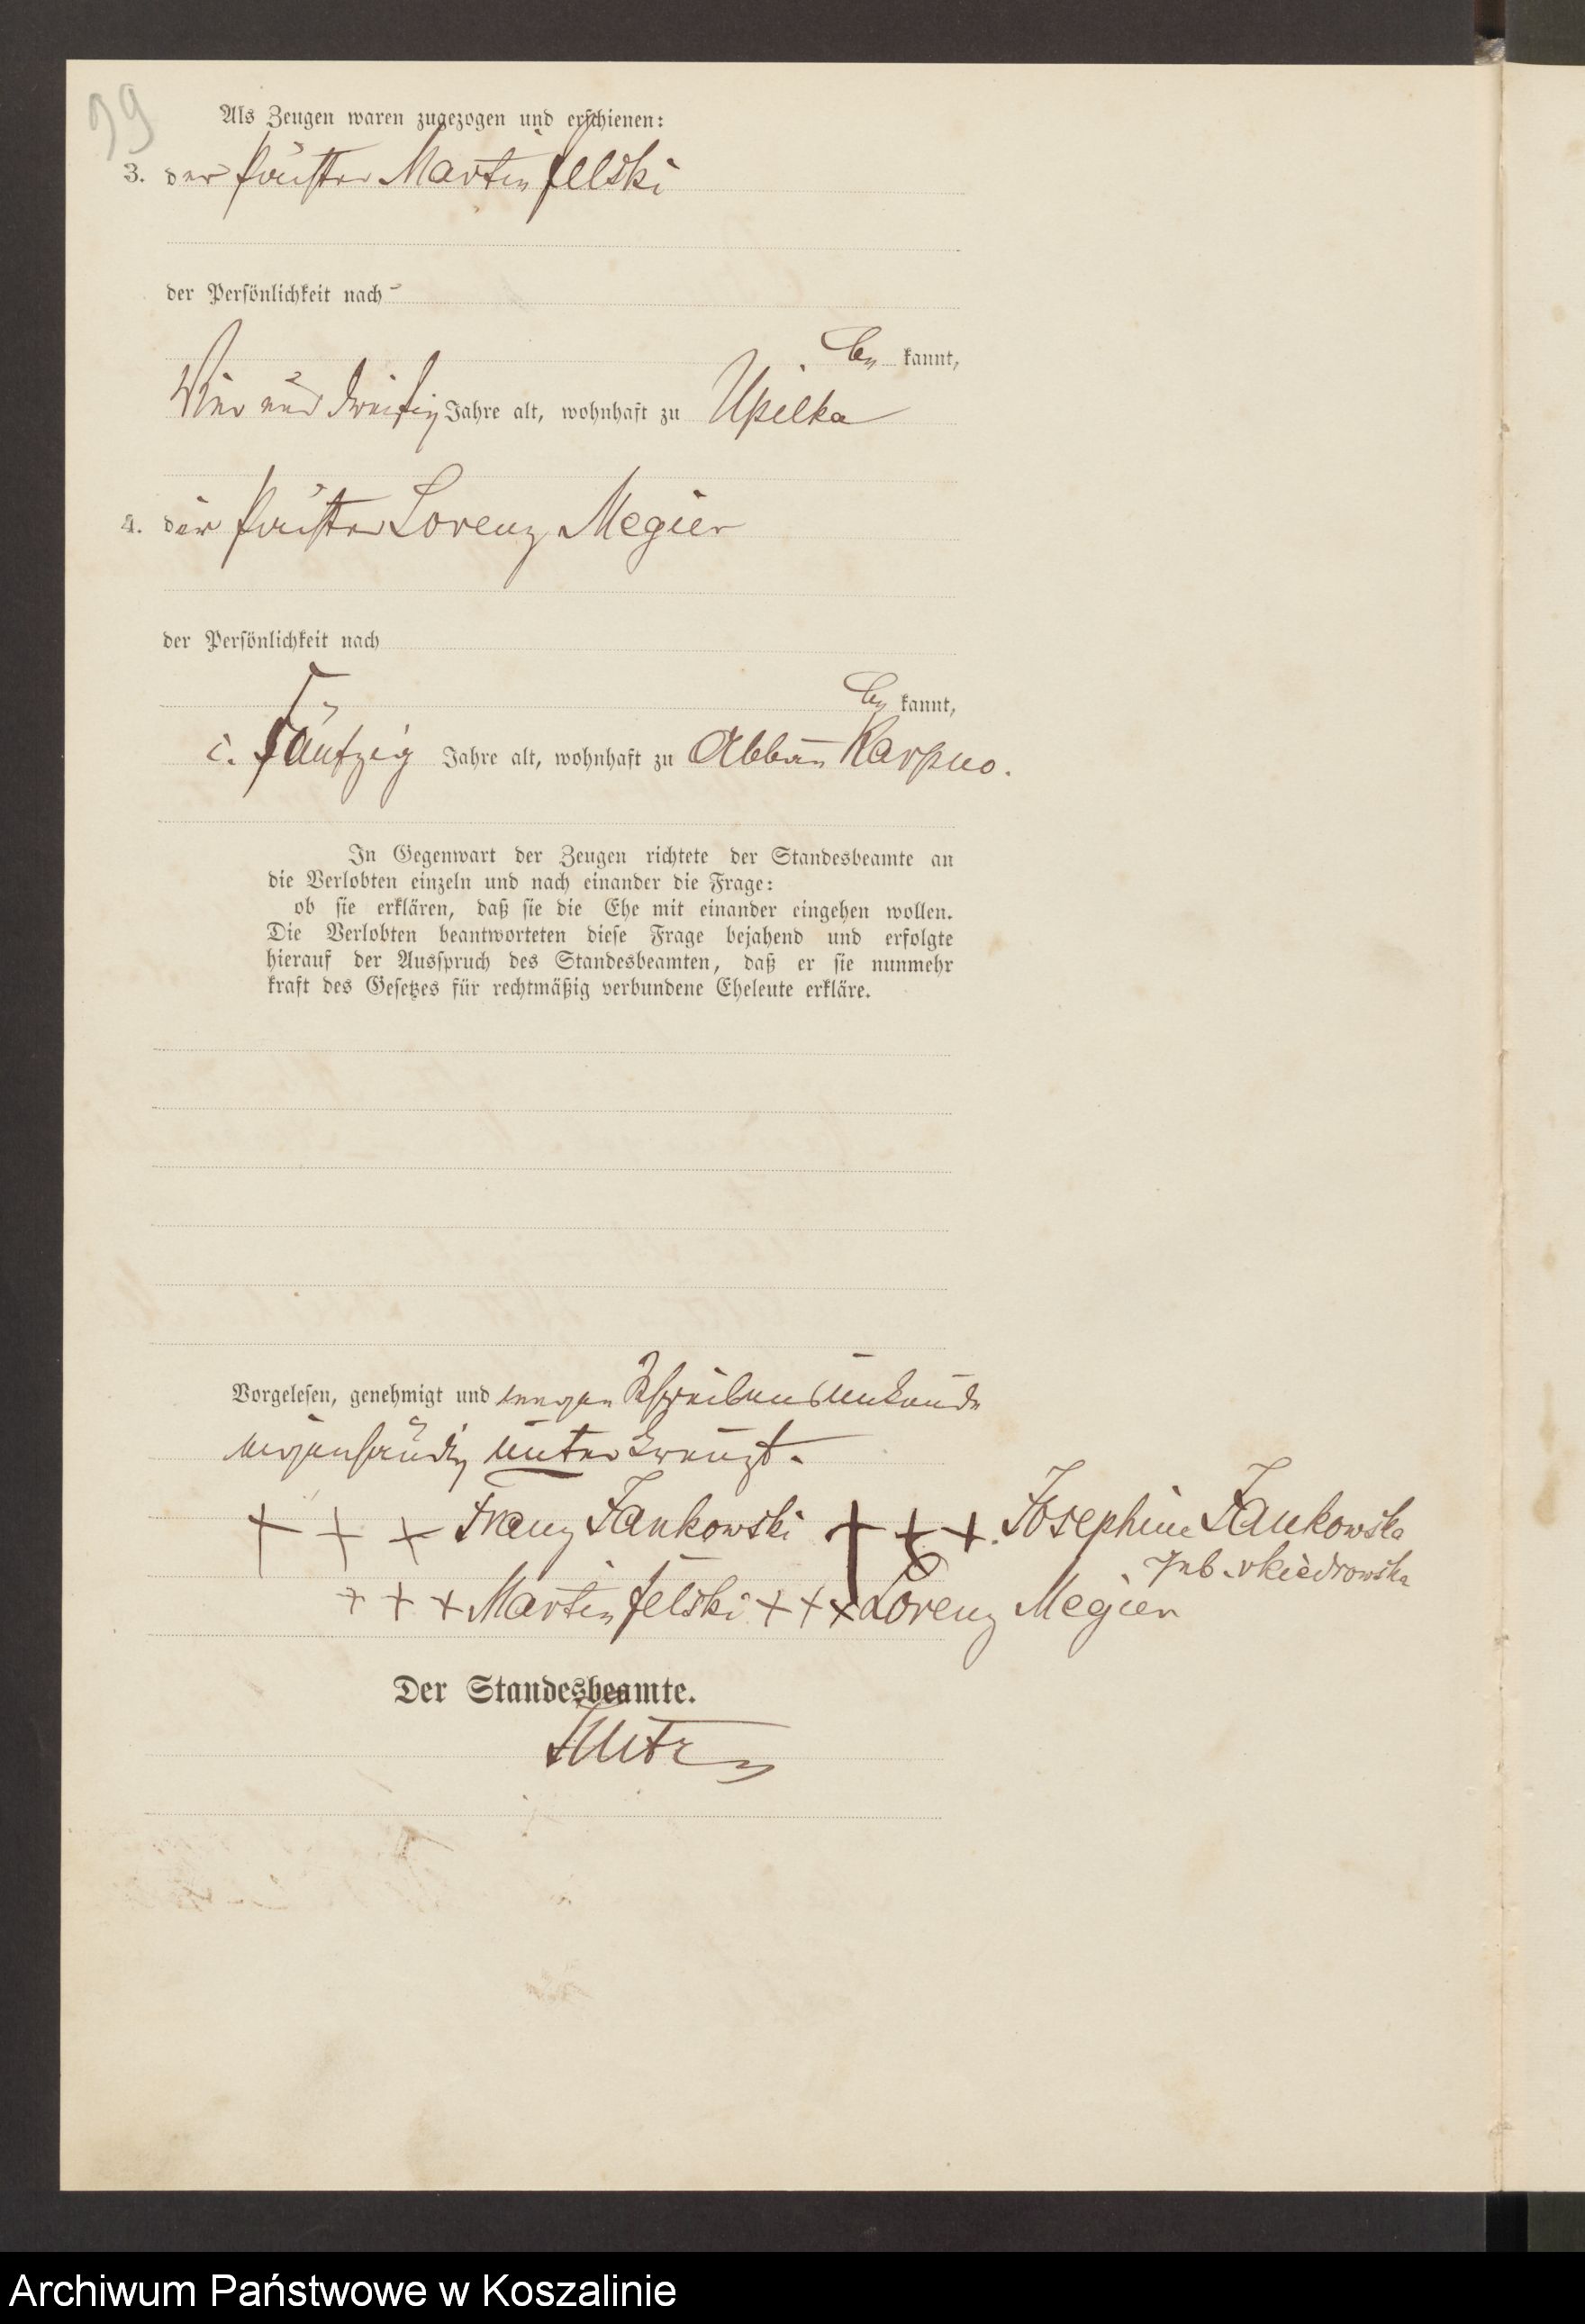 39
Als Zeugen waren zugezogen und erschienen:
3. der Martin Felski
der Persönlichkeit nach
be kannt,
Vier und dreißig Jahre alt, wohnhaft zu Upilka
4. der Lorenz Megier
der Persönlichkeit nach
be kannt,
Jahre alt, wohnhaft zu Abbau Karpno.
In Gegenwart der Zeugen richtete der Standesbeamte an
die Verlobten einzeln und nach einander die Frage:
ob sie erklären, daß sie die Ehe mit einander eingehen wollen.
Die Verlobten beantworteten diese Frage bejahend und erfolgte
hierauf der Ausspruch des Standesbeamten, daß er sie nunmehr
kraft des Gesetzes für rechtmäßig verbundene Eheleute erkläre.
Vorgelesen, genehmigt und wegen Schreibensunkunde
eigenhändig unterkreuzt.
+ + + Franz Jankowski + + +. Josephine Jankowska
geb. v Kiedrowska
+ + + Martin Felski + + + Lorenz Megier
Der Standesbeamte.
Archiwum Państwowe w Koszalinie